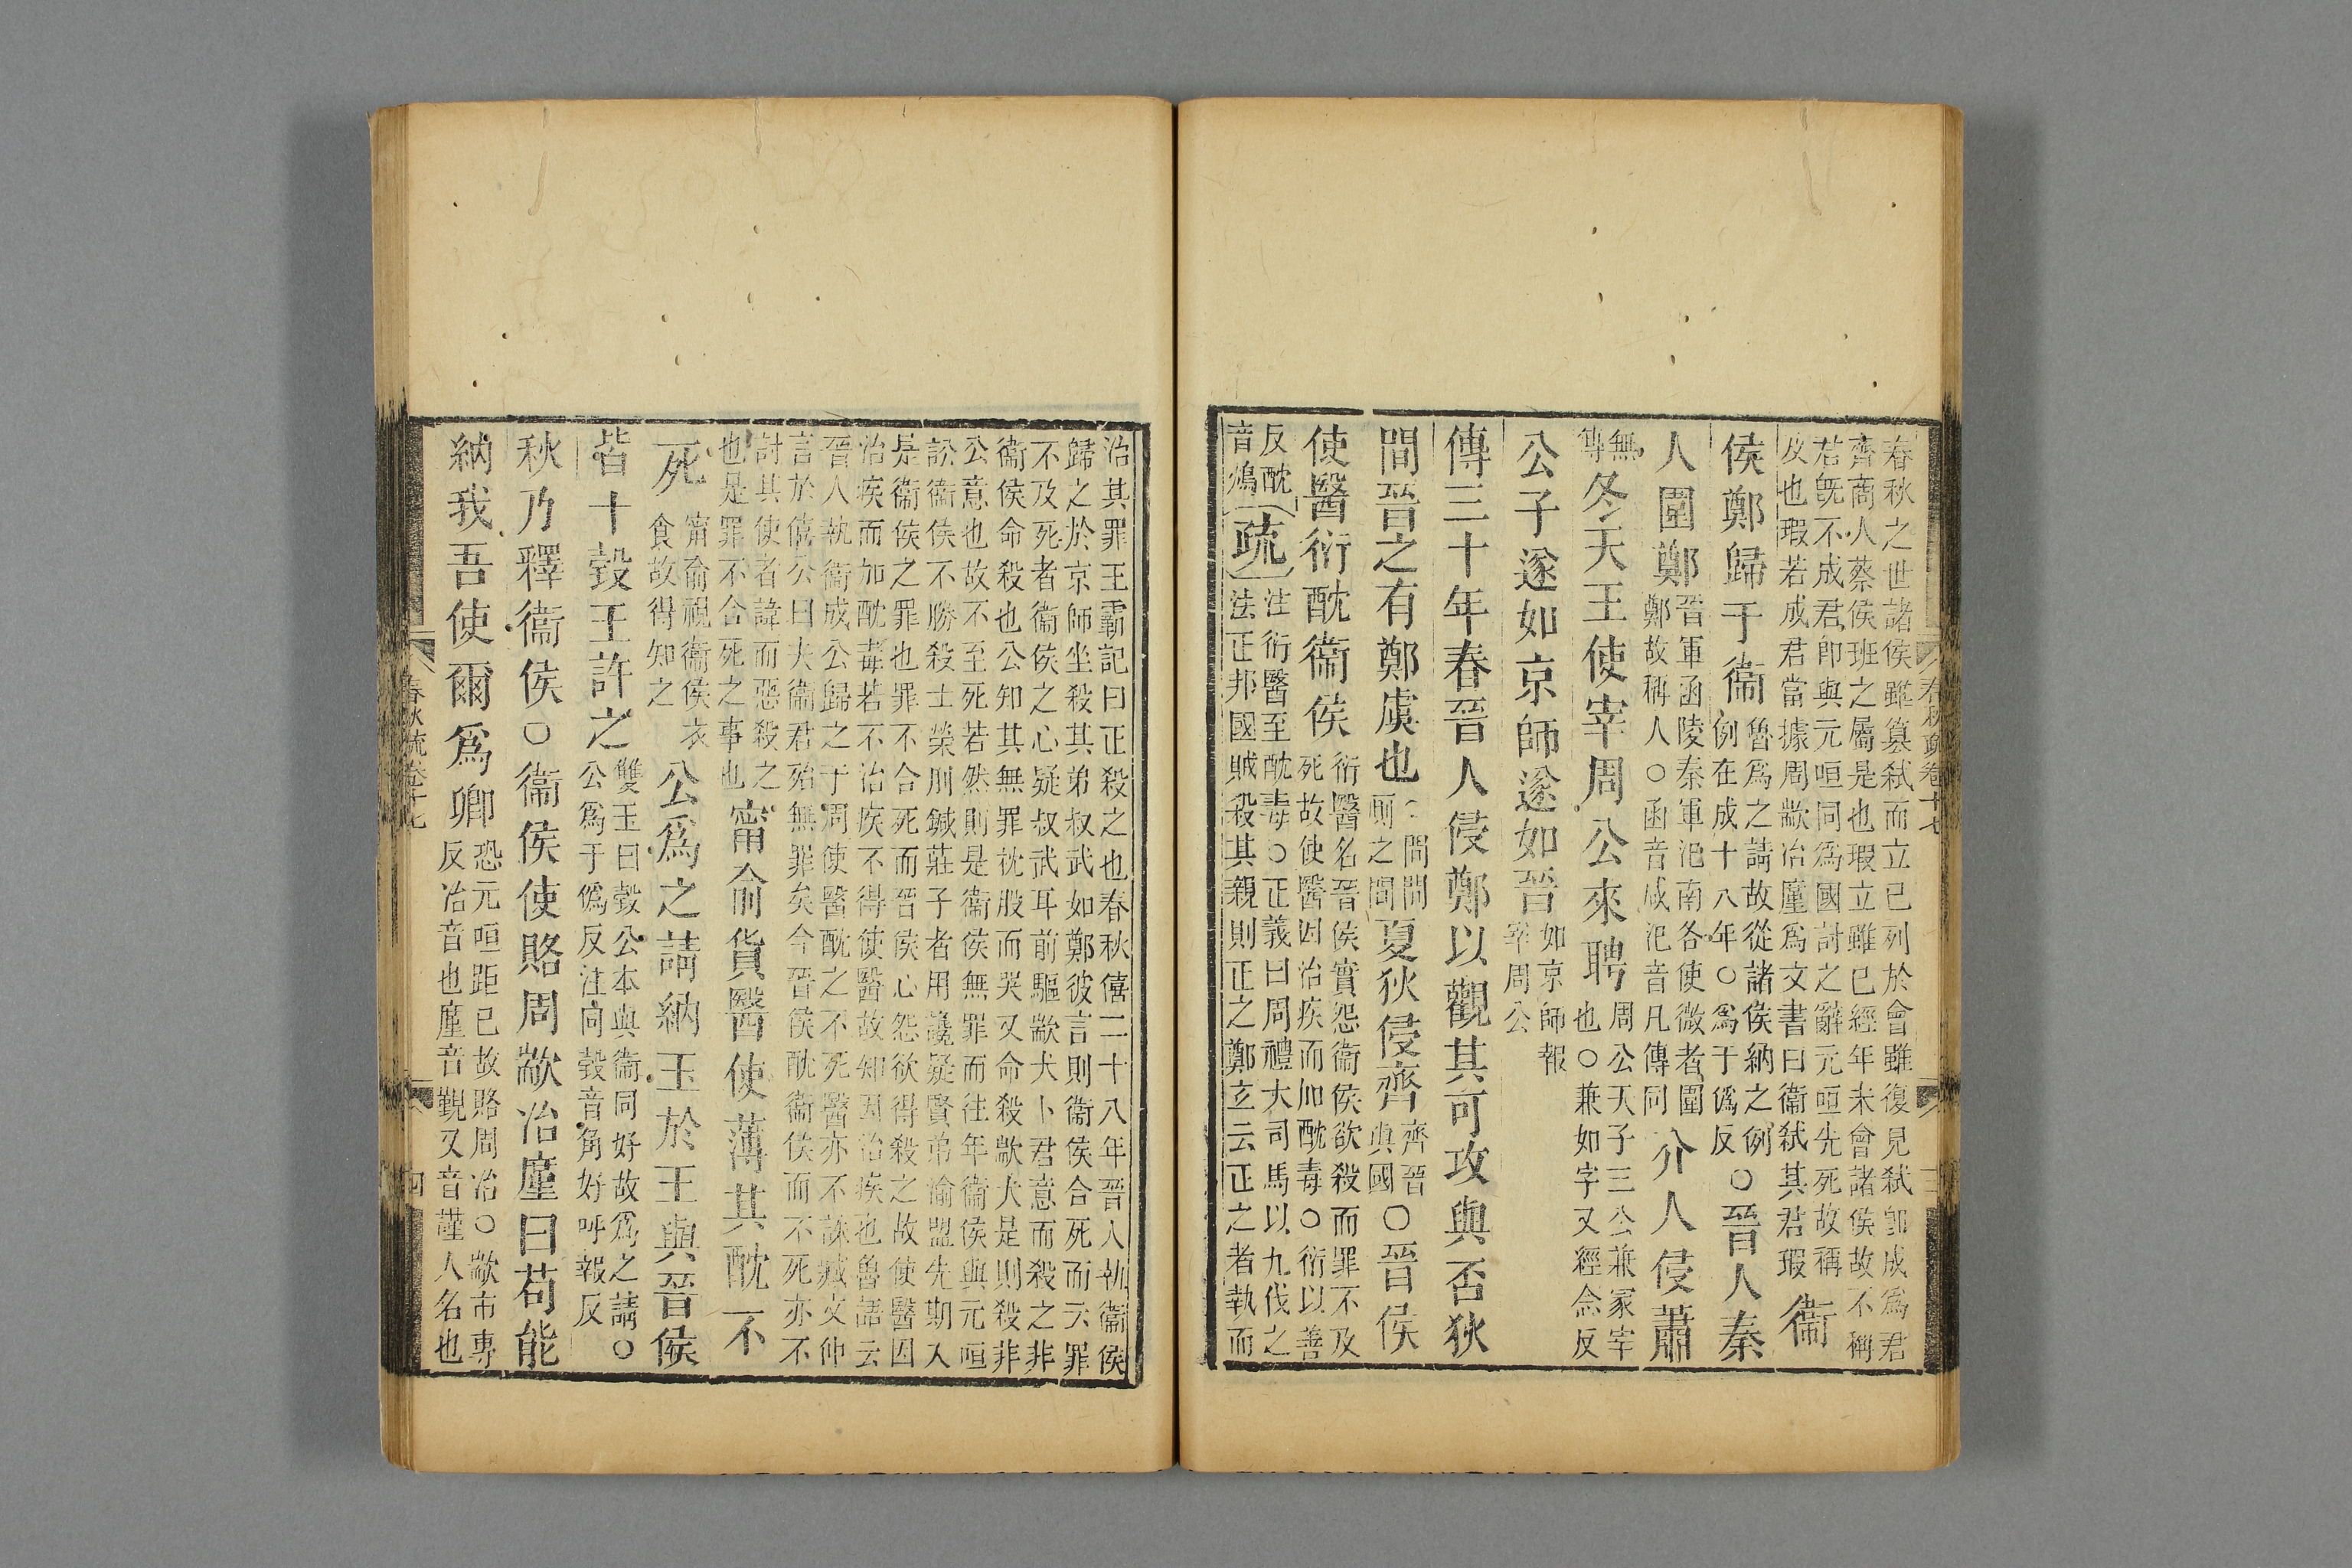 春秋之世諸侯雖篡弒而立已列於會雖復見弒卽成爲君
齊商人蔡侯班之屬是也瑕立雖已經年未會諸侯故不稱
君旣不成君卽與元咺同爲國討之辭元咺先死故稱
及也瑕若成君當據周歂冶廑爲文書曰衞弒其君瑕
衞
侯鄭歸于衞
魯爲之請故從諸侯納之例
例在成十八年○爲于僞反
○晉人秦
人圍鄭
晉軍函陵秦軍氾南各使微者圍
鄭故稱人○函音咸氾音凡傳同
介人侵蕭
無
傳
冬天王使宰周公來聘
周公天子三公兼冢宰
也○兼如字又經念反
公子遂如京師遂如晉
如京師報
宰周公
傳三十年春晉人侵鄭以觀其可攻與否狄
間晉之有鄭虞也
間間
廁之間
夏狄侵齊
齊晉
與國
○晉侯
使醫衍酖衞侯
衍醫名晉侯實怨衞侯欲殺而罪不及
死故使醫因治疾而加酖毒○衍以善
反酖
音鴆
疏
注衍醫至酖毒○正義曰周禮大司馬以九伐之
法正邦國賊殺其親則正之鄭玄云正之者執而
春秋疏卷十七
三
治其罪王霸記曰正殺之也春秋僖二十八年晉人執衞侯
歸之於京師坐殺其弟叔武如鄭彼言則衞侯合死而云罪
不及死者衞侯之心疑叔武耳前驅歂犬卜君意而殺之非
衞侯命殺也公知其無罪枕股而哭又命殺歂犬是則殺非
公意也故不至死若然則是衞侯無罪而往年衞侯與元咺
訟衞侯不勝殺士榮刖鍼莊子者用讒疑賢弟渝盟先期入
是衞侯之罪也罪不合死而晉侯心怨欲得殺之故使醫因
治疾而加酖毒若不治疾不得使醫故知因治疾也魯語云
晉人執衞成公歸之于周使醫酖之不死醫亦不誅臧文仲
言於僖公曰夫衞君殆無罪矣今晉侯酖衞侯而不死亦不
討其使者諱而惡殺之
也是罪不合死之事也
甯俞貨醫使薄其酖不
死
甯俞視衞侯衣
食故得知之
公爲之請納玉於王與晉侯
皆十瑴王許之
雙玉曰瑴公本與衞同好故爲之請○
公爲于僞反注同瑴音角好呼報反
秋乃釋衞侯○衞侯使賂周歂冶廑曰苟能
納我吾使爾爲卿
恐元咺距己故賂周冶○歂市專
反冶音也廑音覲又音謹人名也
春秋疏卷十七
四